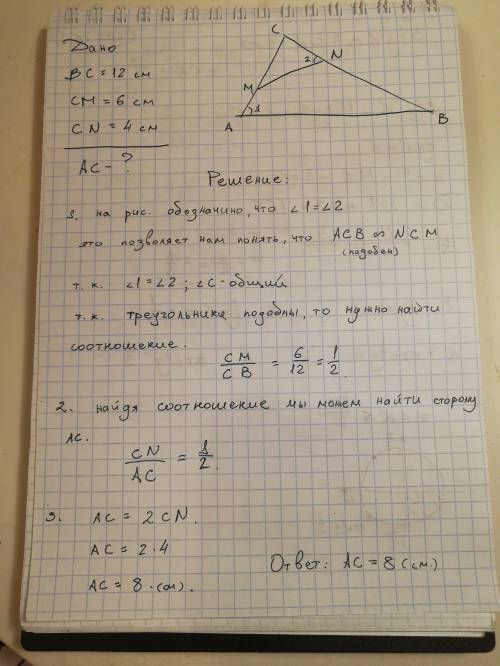 Дано
BC = 12 см
CM = 6 см
CN = 4 см
AC - ?
C
N
2
M
1
A
B
Решение:
1. на рис. обозначино, что ∠1 = ∠2
это позволяет нам понять, что ACB ∞ NCM
(подобен)
т. к. ∠1 = ∠2 ; ∠C - общий
т.к. треугольники подобны, то нужно найти
соотношение.
CM/CB = 6/12 = 1/2.
2. найдя соотношение мы можем найти сторону
AC.
CN/AC = 1/2.
3. AC = 2CN.
AC = 2·4
AC = 8 · (см).
Ответ: AC = 8 (см.)